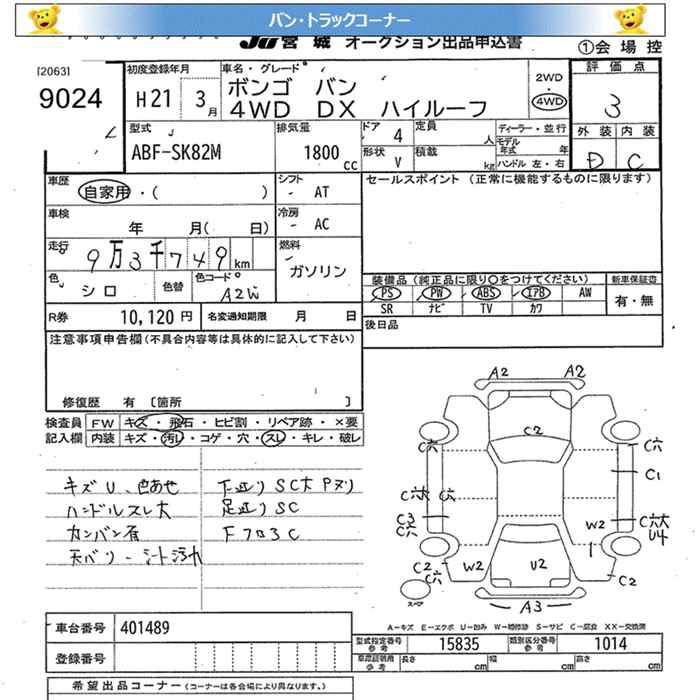 バン・トラックコーナー
JU宮城 オークション出品申込書
①会場控
[2063]
9024
初度登録年月
H21 3月
車名・グレード
ボンゴ バン
4WD DX ハイルーフ
2WD
4WD
評価点
3
型式
ABF-SK82M
排気量
1800 cc
ドア 4
定員 人
形状 V
積載 kg
ディーラー・並行
モデル年式 年
ハンドル 左・右
外装 内装
D C
車歴
自家用・( )
シフト
AT
セールスポイント (正常に機能するものに限ります)
車検
年 月( 日)
冷房
AC
走行
9万3千749km
燃料
ガソリン
色
シロ
色替
色コード
A2W
装備品(純正品に限り○をつけてください)
新車保証書
PS PW ABS エアB AW
有・無
SR ナビ TV カワ
R券 10,120円
名変通知期限 月 日
後日品
注意事項申告欄(不具合内容等は具体的に記入して下さい)
修復歴 有〔箇所 〕
検査員記入欄
FW キズ・飛石・ヒビ割・リペア跡・×要
内装 キズ・汚れ・コゲ・穴・スレ・キレ・破レ
キズU、色あせ
ハンドルスレ大
カンバン有
天バリ-シート汚れ
下廻りSC大Pヌリ
足廻りSC
Fフロ3C
A2 A2
C2
C穴 C穴
C1
C穴 C穴
C3
C穴
W2
C穴大
U4
C2
C穴
W2
U2
C2
スペア
A3
A-キズ E-エクボ U-凹み W-補修跡 S-サビ C-腐食 XX-交換済
車台番号 401489
型式指定番号 参考 15835
類別区分番号 参考 1014
登録番号
車庫証明用 参考
長さ cm
幅 cm
高さ cm
希望出品コーナー(コーナーは各会場により異なります。)